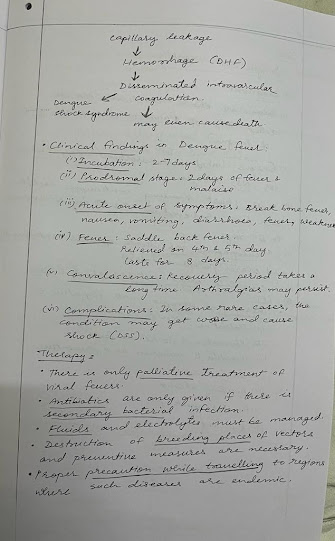 Capillary leakage
↓
Hemorrhage (DHF)
↓
Disseminated intravascular
coagulation
Dengue
shock syndrome
may even cause death
• Clinical findings in Dengue fever
(i) Incubation: 2-7 days
(ii) Prodromal stage: 2 days of fever &
malaise
(iii) Acute onset of symptoms: Break bone fever,
nausea, vomiting, diarrhoea, fever, weakness
(iv) Fever: Saddle back fever.
Relieved on 4th & 5th day
lasts for 8 days.
(v) Convalascence: recovery period takes a
long time. Arthralgias may persist.
(vi) Complications: In some rare cases, the
condition may get worse and cause
shock (DSS).
Therapy:
• There is only palliative treatment of
viral fevers.
• Antibiotics are only given if there is
secondary bacterial infection.
• Fluids and electrolytes must be managed.
• Destruction of breeding places of vectors
and preventive measures are necessary.
• Proper precaution while travelling to regions
where such diseases are endemic.